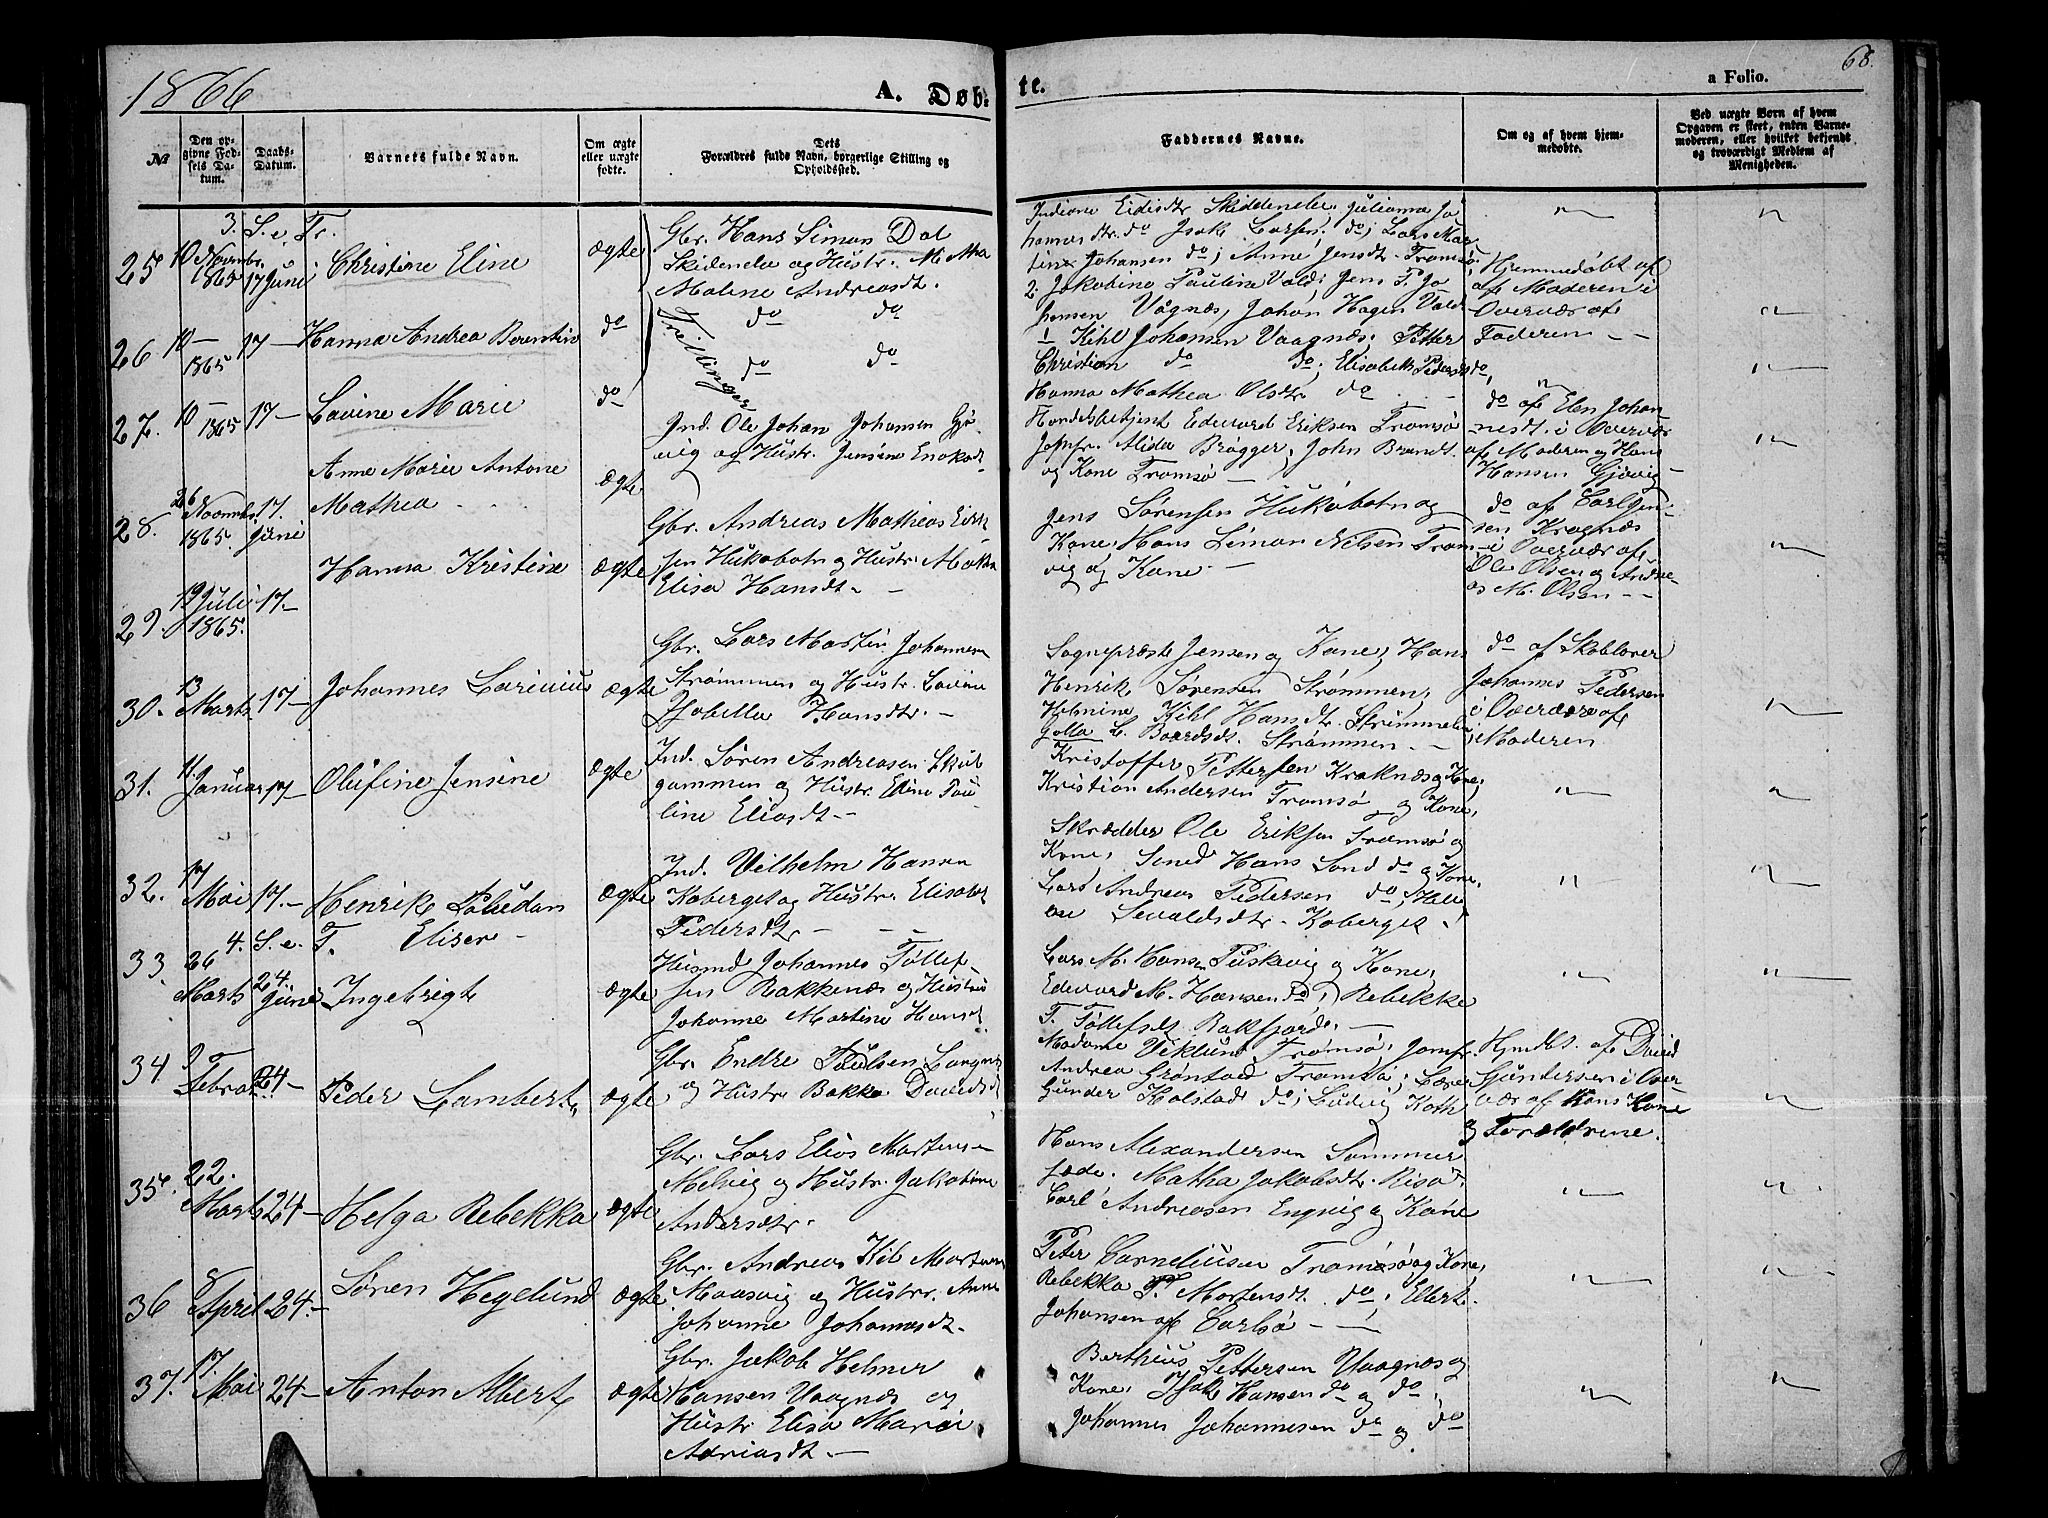 1866
A. Døb-
te.
a Folio.
68.
№
Den op-
givne Fød-
sels Da-
tum.
Daabs-
Datum.
Barnets fulde Navn.
Om ægte
eller uægte
fødte.
Dets
Forældres fulde Navn, borgerlige Stilling og
Opholdssted.
Faddernes Navne.
Om og af hvem hjem-
medøbte.
Ved uægte Børn af hvem
Opgaven er skeet, enten Barne-
moderen, eller hvilket bekjendt
og troværdigt Medlem af
Menigheden.
3. S. e. Tr.
25 10 Novmbr. 1865 17 Juni Christine Eline ægte
Gbr. Hans Simon Dal
Skidenelv og Hustr. M. Mtha
Malene Andreasdt.
Johansen do; Anne Jensdt. Tromsø;
Hjemmedøbt af
af Moderen i
Overvær af
Faderen - -
26 10 - 1865 17 - Hanna Andrea Berentine do
Trillinger
do do
2. Jakobine Pauline Vold; Jens P. Jo
hansen Vågnæs, Johan Hagen Vold
Kihl Johansen Vaagnæs; Petter
Christian do do; Elisabeth Pedersdt do,
Hanna Mathea Olsdtr do
27. 10 - 1865 17 - Lavine Marie do
do do
28. 26 Novmbr 1865. 17. Juni
Anne Marie Antone
Mathea ægte
Ind. Ole Johan Johansen Gjø-
vig og Hustr. Jensine Enoksdt.
Handelsbetjent Edevard Eriksen Tromsø
Jomfr. Alida Brøgger, John Brandt
og Kone Tromsø -
do af Elen Johan-
nesdt. i Overvær
af Moderen og Hans
Hansen Gjøvig -
29. 19 Juli 1865. 17 - Hanna Kristine ægte
Gbr. Andreas Mathias Erik
sen Hukøbotn og Hustr. Martha
Elisa Hansdt. -
Jens Sørensen Hukøbotn og
Kone, Hans Simon Nilsen Trom-
vig og Kone. -
do af Carl Jen-
sen Kragnæs
i Overvær af
Ole Olsen og Andre-
as M. Olsen - -
30. 13 Marts 17 - Johannes Larinius ægte
Gbr. Lars Martin Johannesen
Strømmen og Hustr. Lavine
Isabella Hansdtr. -
Sogneprest Jensen og Kone; Hans
Henrik Sørensen Strømmen,
Helmine Kihl Hansdtr. Skrømmelen
Golla L. Baardsdt. Strømmen - -
do af Skolelærer
Johannes Pedersen
i Overvær af
Moderen
31. 11. Januar 17 - Olufine Jensine ægte
Ind. Søren Andreasen Skul
gammen og Hustr. Eline Pau-
line Eliasdt -
Kristoffer Pettersen Kraknæs og Kone,
Kristian Andersen Tromsø og Kone,
32. 17 Mai 17. - Henrik Paludan
Eliser - ægte
Ind. Vilhelm Hansen
Koberget og Hustr. Elisabet
Pedersdtr. - -
Skrædder Ole Eriksen Tromsø og
Kone, Smed Hans Lund do og Kone,
Lars Andreas Pedersen do,
Sevaldsdtr. Koberget.
4. S. e. T.
33. 26 Marts 24. Juni Ingebrigt ægte
Husmd Johannes Tøllef-
sen Bakkenæs og Hustr.
Johanne Martine Hansdt.
Lars M. Hansen Piskevig og Kone,
Edevard M. Hansen do, Rebekke
T. Tøllefsdt. Bakfjord, -
34. 9 Februar 24 - Peder Lambert, ægte
Gbr. Endre Paulsen Langnæs
og Hustr. Bokka Davidsdt
Madame Viklund Tromsø, Jomfr.
Andrea Grøntad Tromsø; Lærer
Gunder Holstad do; Ludvig Koth
Hjmdbt. af David
Gundersen i Over-
vær af Hans Kone
og Forældrene.
35. 22. Marts 24 - Helga Rebekka ægte
Gbr. Lars Elias Martens-
Melvig og Hustr. Jakobine
Andersdtr.
Hans Alexandersen Sommer
Mathea Jakobsdt. Risø,
Carl Andreasen Engvig og Kone
36 8 April 24. - Søren Hegelund ægte
Gbr. Andreas Kil Mortensen
Maasvig og Hustr. Anne
Johanne Johannesdt.
Peter Corneliusen Tromsø og Kone,
Rebekka P. Mortensdt. do, Ellert.
Johansen af Carlsø - -
37. 17. Mai 24 - Anton Albert ægte
Gbr. Jakob Helmer
Hansen Vaagnæs og
Hustr. Elisa Maria
Adriasdt. -
Berthius Pettersen Vaagnæs og
Kone, Isak Hansen do og do,
Johannes Johannesen do og do